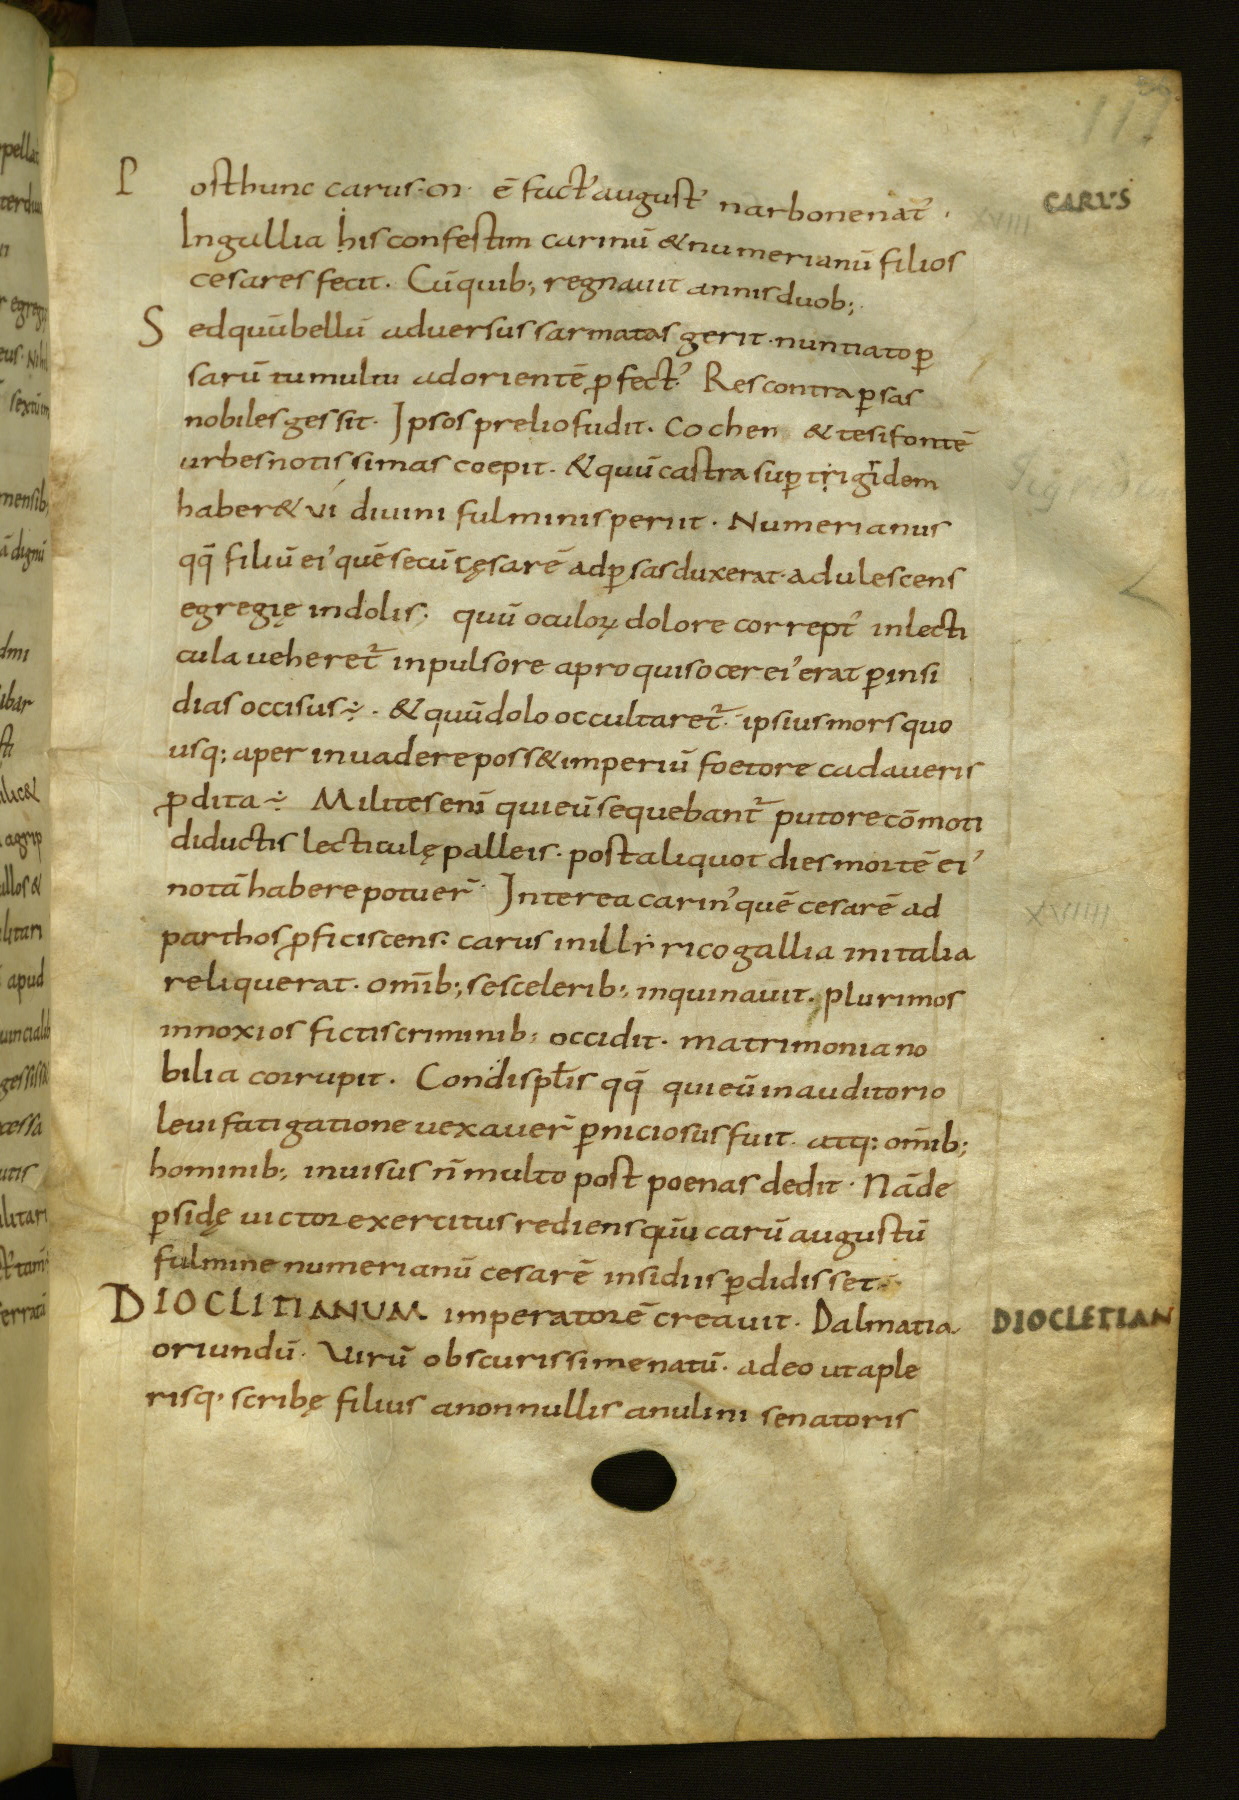 117
CARUS
Posthunc carus·m· ē fact᾽august᾽ narbonenat᾽·
Ingallia his confestim carinū & numerianū filios
cesares fecit. Cūquib; regnauit annisduob;.
Sedquūbellū aduersus sarmatas gerit·nuntiato ꝑ
sarū tumultu adorientē ꝓfect᾽. Res contra ꝑsas
nobiles gessit. Ipsos prelio fudit. Cochen & tesifontē
urbes notissimas coepit. & quū castra suꝑ trigridem
haber& ui diuini fulminis periit. Numerianus
qq̄ filiū ei᾽ quē secū cęsarē ad ꝑsas duxerat· adulescens
egregię indolis; quū oculoꝝ dolore corrept᾽ inlecti
cula ueheret᾽ inpulsore apro qui socer ei᾽ erat ꝑ insi
dias occisus ÷. & quū dolo occultaret᾽. ipsius mors quo
usq; aper inuadere poss& imperiū foetore cadaueris
ꝓdita ÷ Milites enī qui eū sequebant᾽ putore cōmoti
diductis lecticulę palleis. post aliquot dies mortē ei᾽
notā habere potuer̄. Interea carin᾽ quē cesarē ad
parthos ꝓficiscens. carus inillirico gallia initalia
reliquerat. om̄ib; se scelerib; inquinauit. plurimos
innoxios fictis criminib; occidit. matrimonia no
bilia corrupit. Condisplis̄ qq̄ qui eū inauditorio
leui fatigatione uexauer̄ ꝑniciosus fuit. atq; om̄ib;
hominib; inuisus n̄ multo post poenas dedit. Nāde
ꝑsidę uictor exercitus rediens quū carū augustū
fulmine numerianū cesarē insidiis ꝑdidisset.
DIOCLITIANUM imperatorē creauit. Dalmatia
DIOCLETIAN
oriundū. Uirū obscurissime natū. adeo ut a ple
risq; scribę filius a nonnullis anulini senatoris